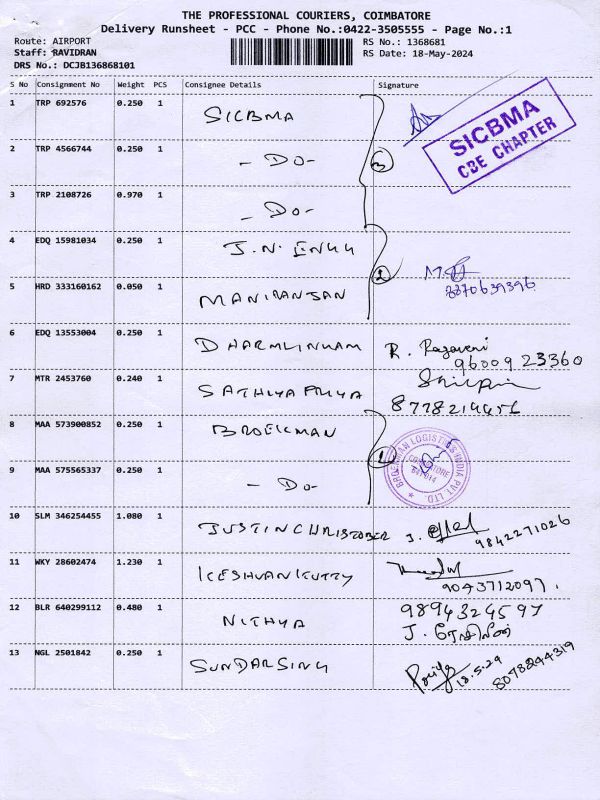 THE PROFESSIONAL COURIERS, COIMBATORE
Delivery Runsheet - PCC - Phone No.:0422-3505555 - Page No.:1
Route: AIRPORT
RS No.: 1368681
Staff: RAVIDRAN
RS Date: 18-May-2024
DRS No.: DCJB136868101
S No Consignment No Weight PCS Consignee Details Signature
1 TRP 692576 0.250 1 SICBMA
SICBMA
CBE CHAPTER
2 TRP 4566744 0.250 1 - DO - 3
3 TRP 2108726 0.970 1 - DO -
4 EDQ 15981034 0.250 1 J.N. ENGG
2
5 HRD 333160162 0.050 1 MANIRANJAN 8870639396
6 EDQ 13553004 0.250 1 DHARMLINHAM R. Rajaveni
9600923360
7 MTR 2453760 0.240 1 SATHYAPRIYA
8778219451
8 MAA 573900852 0.250 1 BROEKMAN
BROEKMAN LOGISTICS INDIA PVT LTD
COIMBATORE
641 014
9 MAA 575565337 0.250 1 - DO -
10 SLM 346254455 1.080 1 JUSTIN CHRISTOBER J.
9842271026
11 WKY 28602474 1.230 1 KESHVANKUTTY
9043712097.
12 BLR 640299112 0.480 1 NITHYA 9894324597
J. ரோசிலின்
13 NGL 2501842 0.250 1 SUNDARSING Priya
18.5.29
8078244319